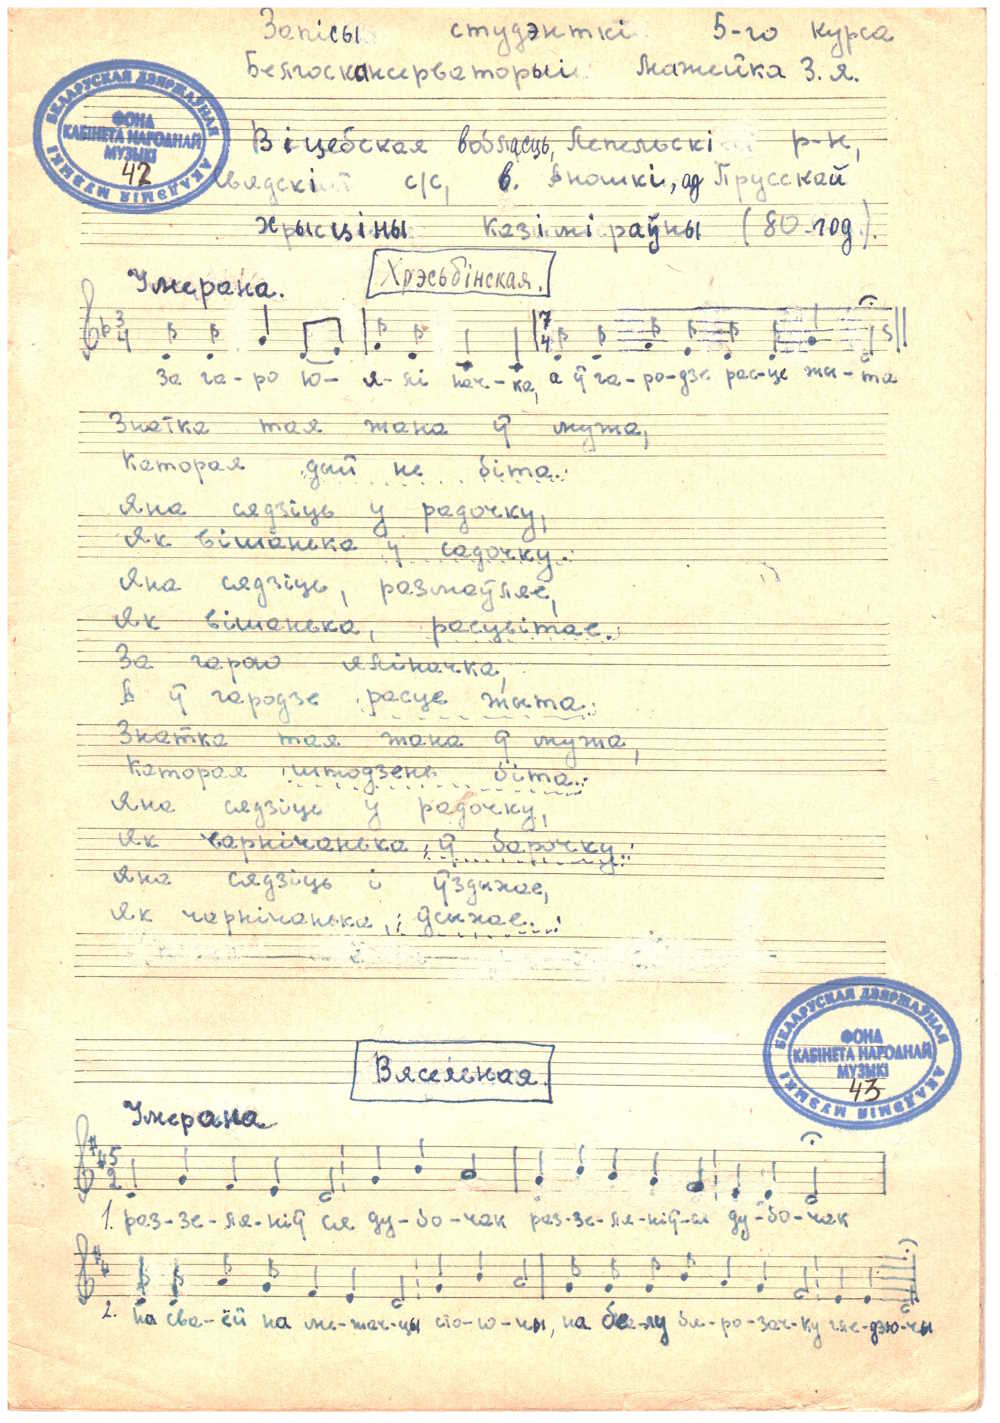 Запісы студэнткі 5-го курса
Белгоскансерваторыі Мажейка З. Я.
БЕЛАРУСКАЯ ДЗЯРЖАЎНАЯ АКАДЭМІЯ МУЗЫКІ
ФОНД
КАБІНЕТА НАРОДНАЙ
МУЗЫКІ
42
Віцебская вобласць, Лепельскі р-н,
с/с, в. Аношкі, ад Прусскай
Хрысціны Казіміраўны (80 год).
Хрэсьбінская.
Умерана.
3/4 7/4
За га-ро ю- я-лі нач-ка, а ў га-ро-дзе рас-це жы-та
Знатка тая жана ў мужа,
Каторая дый не біта.
Яна сядзіць у радочку,
Як вішанька ў садочку.
Яна сядзіць, размаўляе,
Як вішанька, расцвітае.
За гарою яліначка,
А ў гародзе расце жыта.
Знатка тая жана ў мужа,
Каторая штодзень біта.
Яна сядзіць у радочку,
Як чарнічанька, ў барочку.
Яна сядзіць і ўздыхае,
Як чарнічанька, дсыхае.
БЕЛАРУСКАЯ ДЗЯРЖАЎНАЯ АКАДЭМІЯ МУЗЫКІ
ФОНД
КАБІНЕТА НАРОДНАЙ
МУЗЫКІ
43
Вясельная.
Умерана
5/2
1. раз-зе-ля-ніў ся ду-бо-чак раз-зе-ля-ніў-ся ду-бо-чак
2. На сва-ёй на ме-жач-цы сто-ю-чы, на бе-лу бя-ро-зач-ку гле-дзю-чы